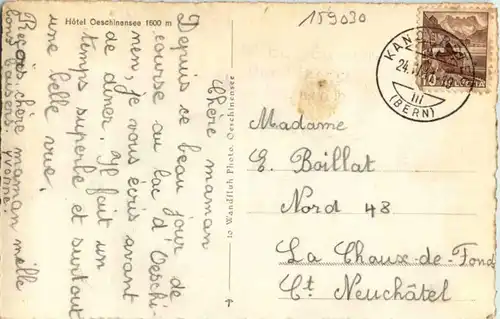 Hôtel Oeschinensee 1600 m
159030
Chère maman
Depuis ce beau jour de
course au lac d'Oeschi-
nen, je vous écris avant
de dîner. Il fait un
temps superbe et surtout
une belle vue.
Reçois chère maman mille
bons baisers. Yvonne.
10 Wandfluh Photo. Oeschinensee
KANDERSTEG
24.
III
(BERN)
10
HELVETIA
Madame
E. Boillat
Nord 48
La Chaux-de-Fond
Ct Neuchâtel